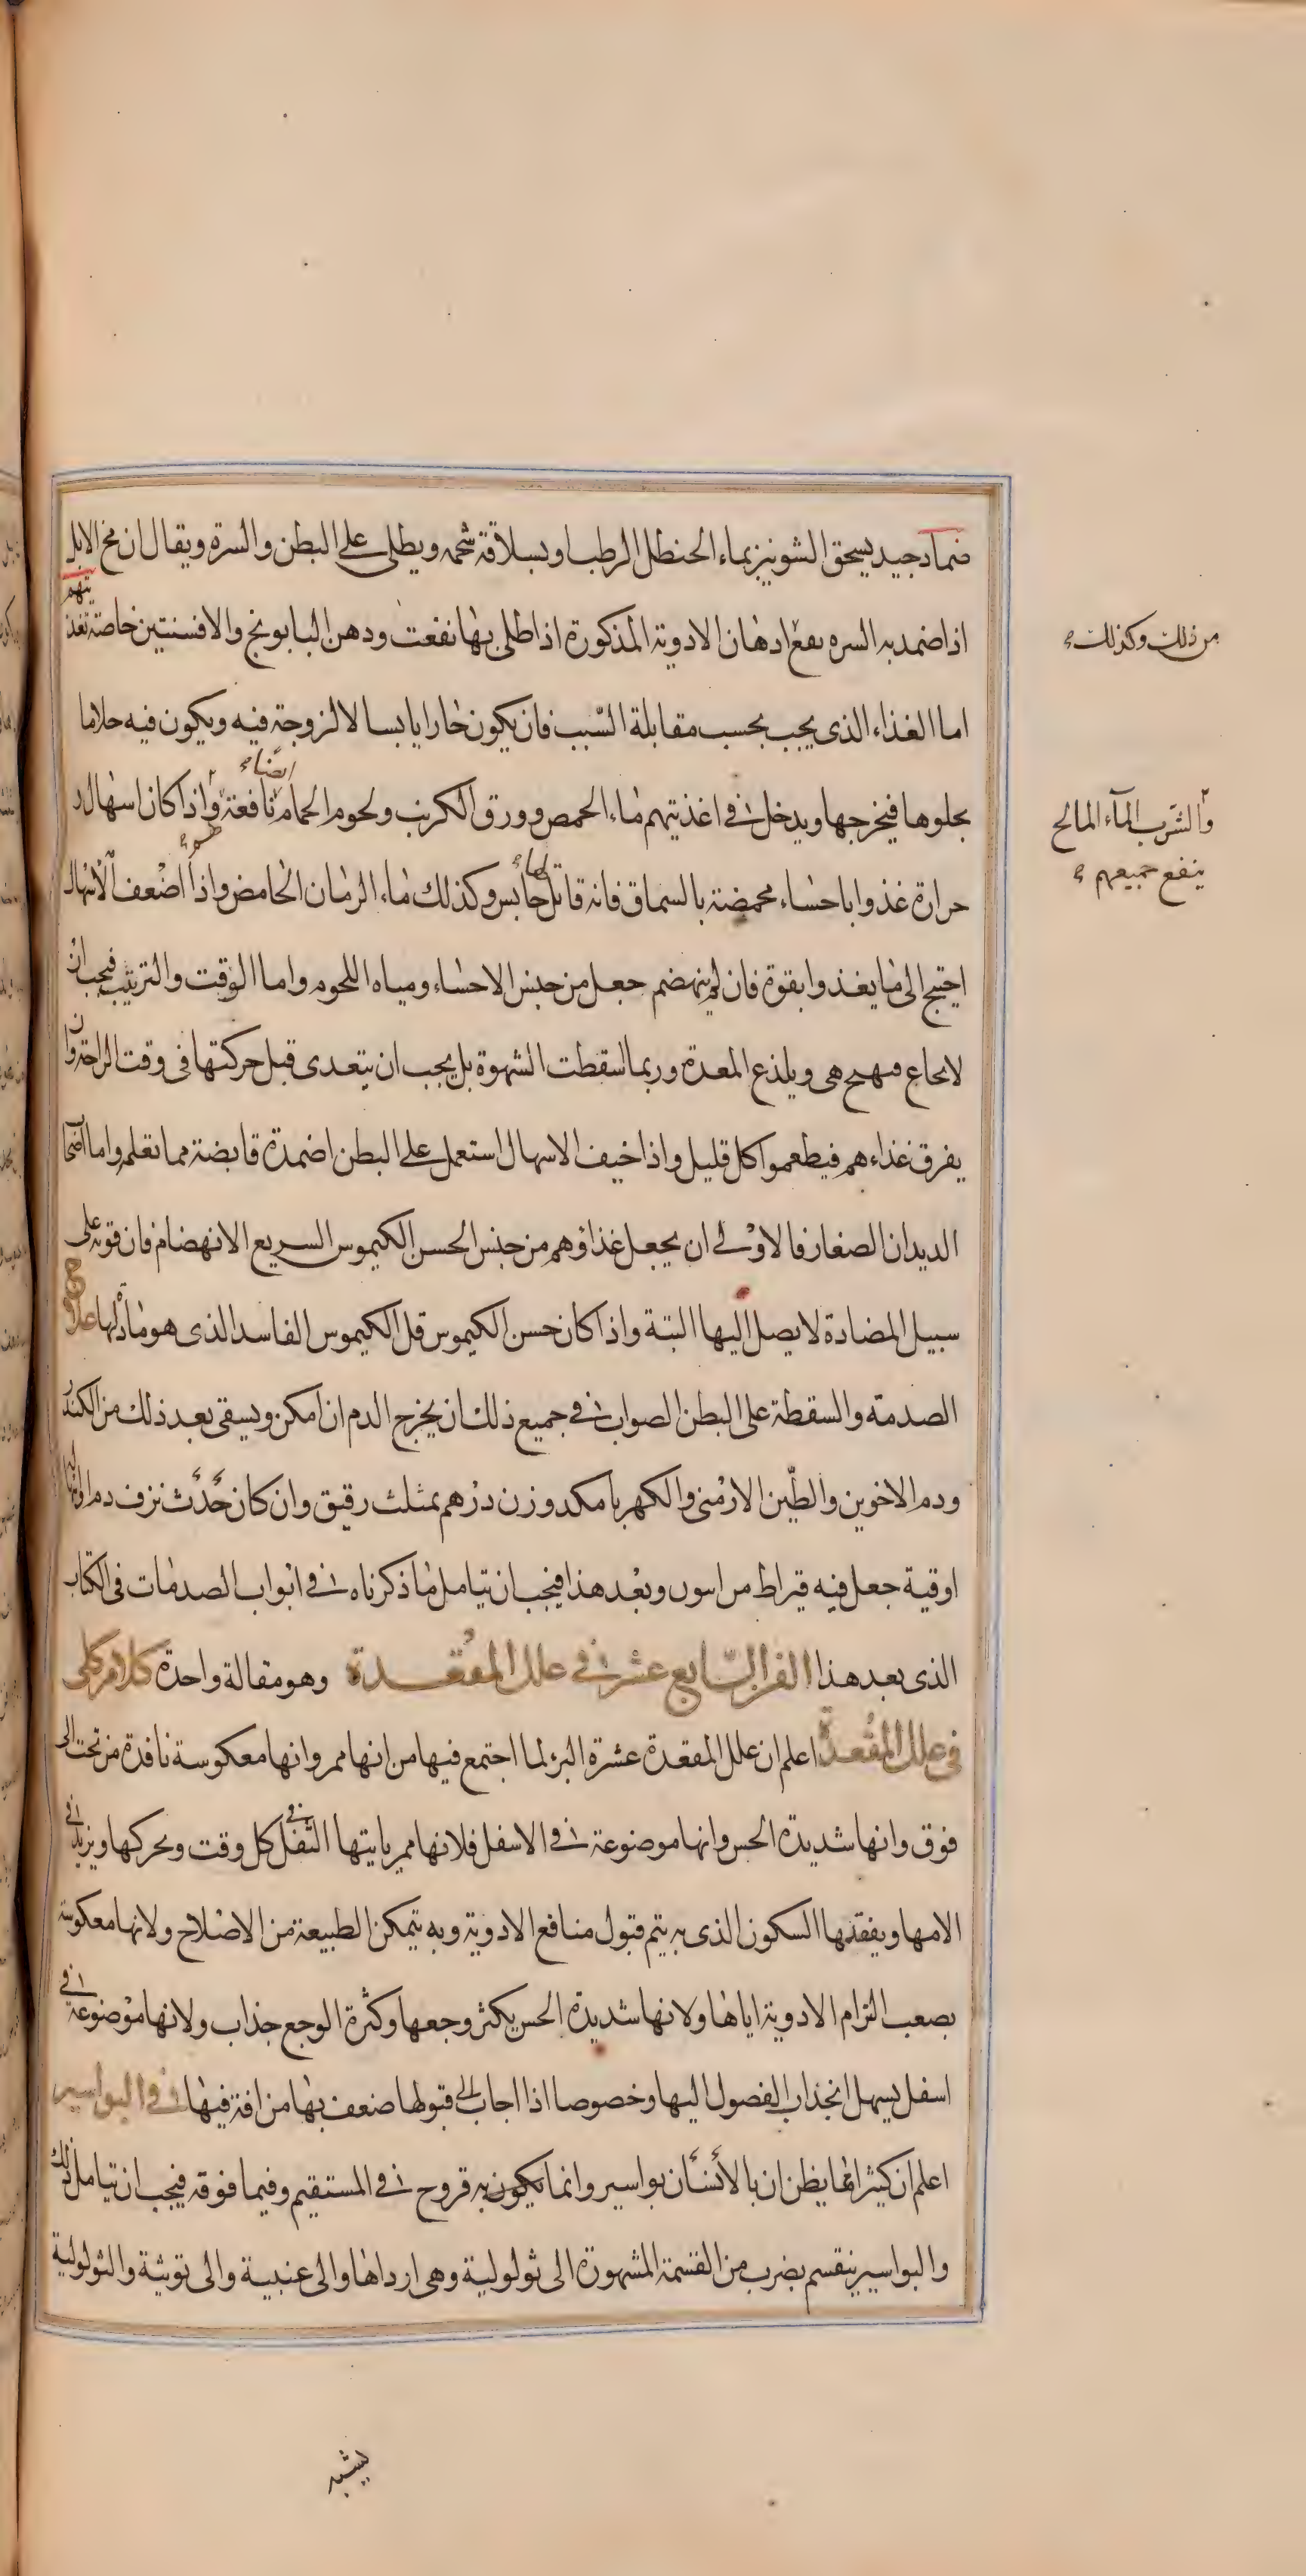 ضماد جيد يسحق الشونيز بماء الحنظل الرطب او بسلاقة شحمه ويطلى على البطن والسرة ويقال ان مخ الايل
اذا ضمد به السره نفع ادهان الادوية المذكورة اذا طلى بها نفعت ودهن البابونج والافسنتين خاصة تغذيتهم
من ذلك وكذلك
اما الغذاء الذى يجب بحسب مقابلة السبب فان يكون حارا يابسا لا لزوجة فيه ويكون فيه جلاء ما
يجلوها فيخرجها ويدخل فى اغذيتهم ماء الحمص وورق الكرنب ولحوم الحمام نافعة ايضاء واذا كان اسهال و
والشرب الماء المالح
ينفع جميعهم
حرارة غذوا باحساء محمضة بالسماق فانه قاتل لها حابس وكذلك ماء الرمان الحامض واذا اضعف الاسهال
احتيج الى ما يغذوا بقوة فان لم ينهضم جعل من جنس الاحساء ومياه اللحوم واما الوقت والترتيب فيجب ان
لا يجاع فيهيج هى ويلذع المعدة وربما اسقطت الشهوة بل يجب ان يتغدى قبل حركتها فى وقت الراحة وان
يفرق غذاءهم فيطعموا كل قليل واذا خيف الاسهال استعمل على البطن اضمدة قابضة مما تعلم واما اصحا
الديدان الصغار فالاولى ان يجعل غذاؤهم من جنس الحسن الكيموس السريع الانهضام فان قوته على
سبيل المضادة لا يصل اليها البتة واذا كان حسن الكيموس قل الكيموس الفاسد الذى هو مادتها علاج
الصدمة والسقطة على البطن الصواب فى جميع ذلك ان يخرج الدم ان امكن ويسقى بعد ذلك من الكندر
ودم الاخوين والطين الارمنى والكهربا مكد وزن درهم بمثلث رقيق وان كان حدث نزف دم او
اوقية جعل فيه قيراط من ابيون وبعد هذا فيجب ان يتامل ما ذكرناه فى ابواب الصدمات فى الكتاب
الذى بعد هذا الفن السابع عشر فى علل المقعدة وهو مقالة واحدة كلام كلى
فى علل المقعدة اعلم ان علل المقعدة عسرة البرء لما اجتمع فيها من انها ممر وانها معكوسة نافذة من تحت الى
فوق وانها شديدة الحس وانها موضوعة فى الاسفل فلانها ممر ياتيها الثفل فى كل وقت ويحركها ويزيد فى
الامها ويفقدها السكون الذى به يتم قبول منافع الادوية وبه يتمكن الطبيعة من الاصلاح ولانها معكوسة
يصعب التزام الادوية اياها ولانها شديدة الحس يكثر وجعها وكثرة الوجع جذاب ولانها موضوعة فى
اسفل يسهل انجذاب الفصول اليها وخصوصا اذا اجاب الى قبولها ضعف بها من افة فيها فى البواسير
اعلم ان كثيرا ما يظن ان بالانسان بواسير وانما يكون به قروح فى المستقيم وفيما فوقه فيجب ان يتامل ذلك
والبواسير ينقسم بضرب من القسمة المشهورة الى ثولولية وهى ارداها والى عنبية والى توثية والثولولية
يشبه